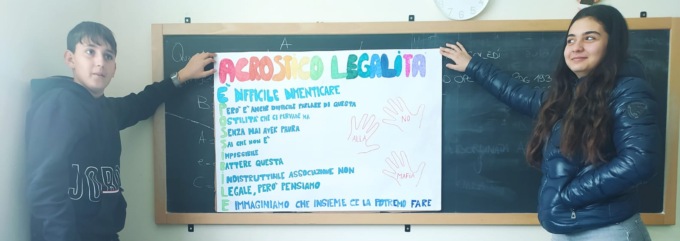 ACROSTICO LEGALITÀ
E' DIFFICILE DIMENTICARE
PERO' E' ANCHE DIFFICILE PARLARE DI QUESTA
OSTILITÀ CHE CI PERVADE MA
SENZA MAI AVER PAURA
SAI CHE NON E'
IMPOSSIBILE
BATTERE QUESTA
INDISTRUTTIBILE ASSOCIAZIONE NON
LEGALE, PERO' PENSIAMO
E IMMAGINIAMO CHE INSIEME CE LA POTREMO FARE
NO
ALLA
MAFIA
A
B
PAG 193